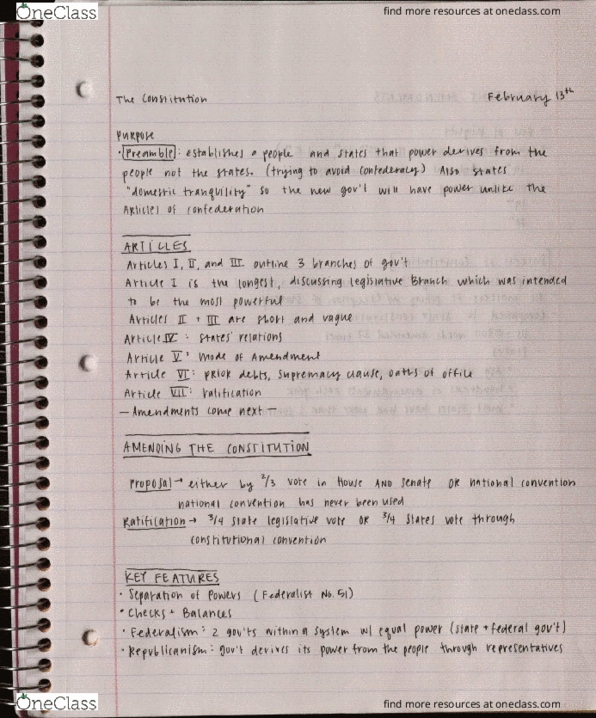 OneClass
find more resources at oneclass.com
The Constitution
February 13th
PURPOSE
• Preamble: establishes a people and states that power derives from the
people not the states. (trying to avoid confederacy) Also states
"domestic tranquility" so the new gov't will have power unlike the
Articles of confederation
ARTICLES
Articles I, II, and III outline 3 branches of gov't
Article I is the longest, discussing legislative Branch which was intended
to be the most powerful
Articles II + III are short and vague
Article IV: States' relations
Article V: Mode of Amendment
Article VI: prior debts, supremacy clause, oaths of office
Article VII: ratification
— Amendments come next —
AMENDING THE CONSTITUTION
Proposal → either by 2/3 vote in House AND Senate OR national convention
national convention has never been used
Ratification → 3/4 state legislative vote OR 3/4 states vote through
constitutional convention
KEY FEATURES
• Separation of Powers (Federalist No. 51)
• Checks + Balances
• Federalism: 2 gov'ts within a system w/ equal power (state + federal gov't)
• Republicanism: gov't derives its power from the people through representatives
OneClass
find more resources at oneclass.com